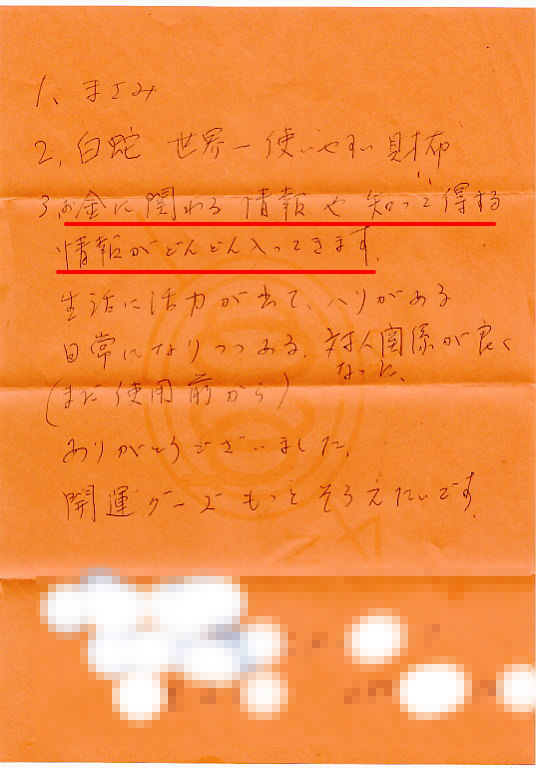 1、まさみ
2、白蛇 世界一使いやすい財布
3、お金に関わる情報や知って得する
情報がどんどん入ってきます。
生活に活力が出て、ハリがある
日常になりつつある。対人関係が良く
なった、
(まだ使用前から)
ありがとうございました。
開運グッズもっとそろえたいです。